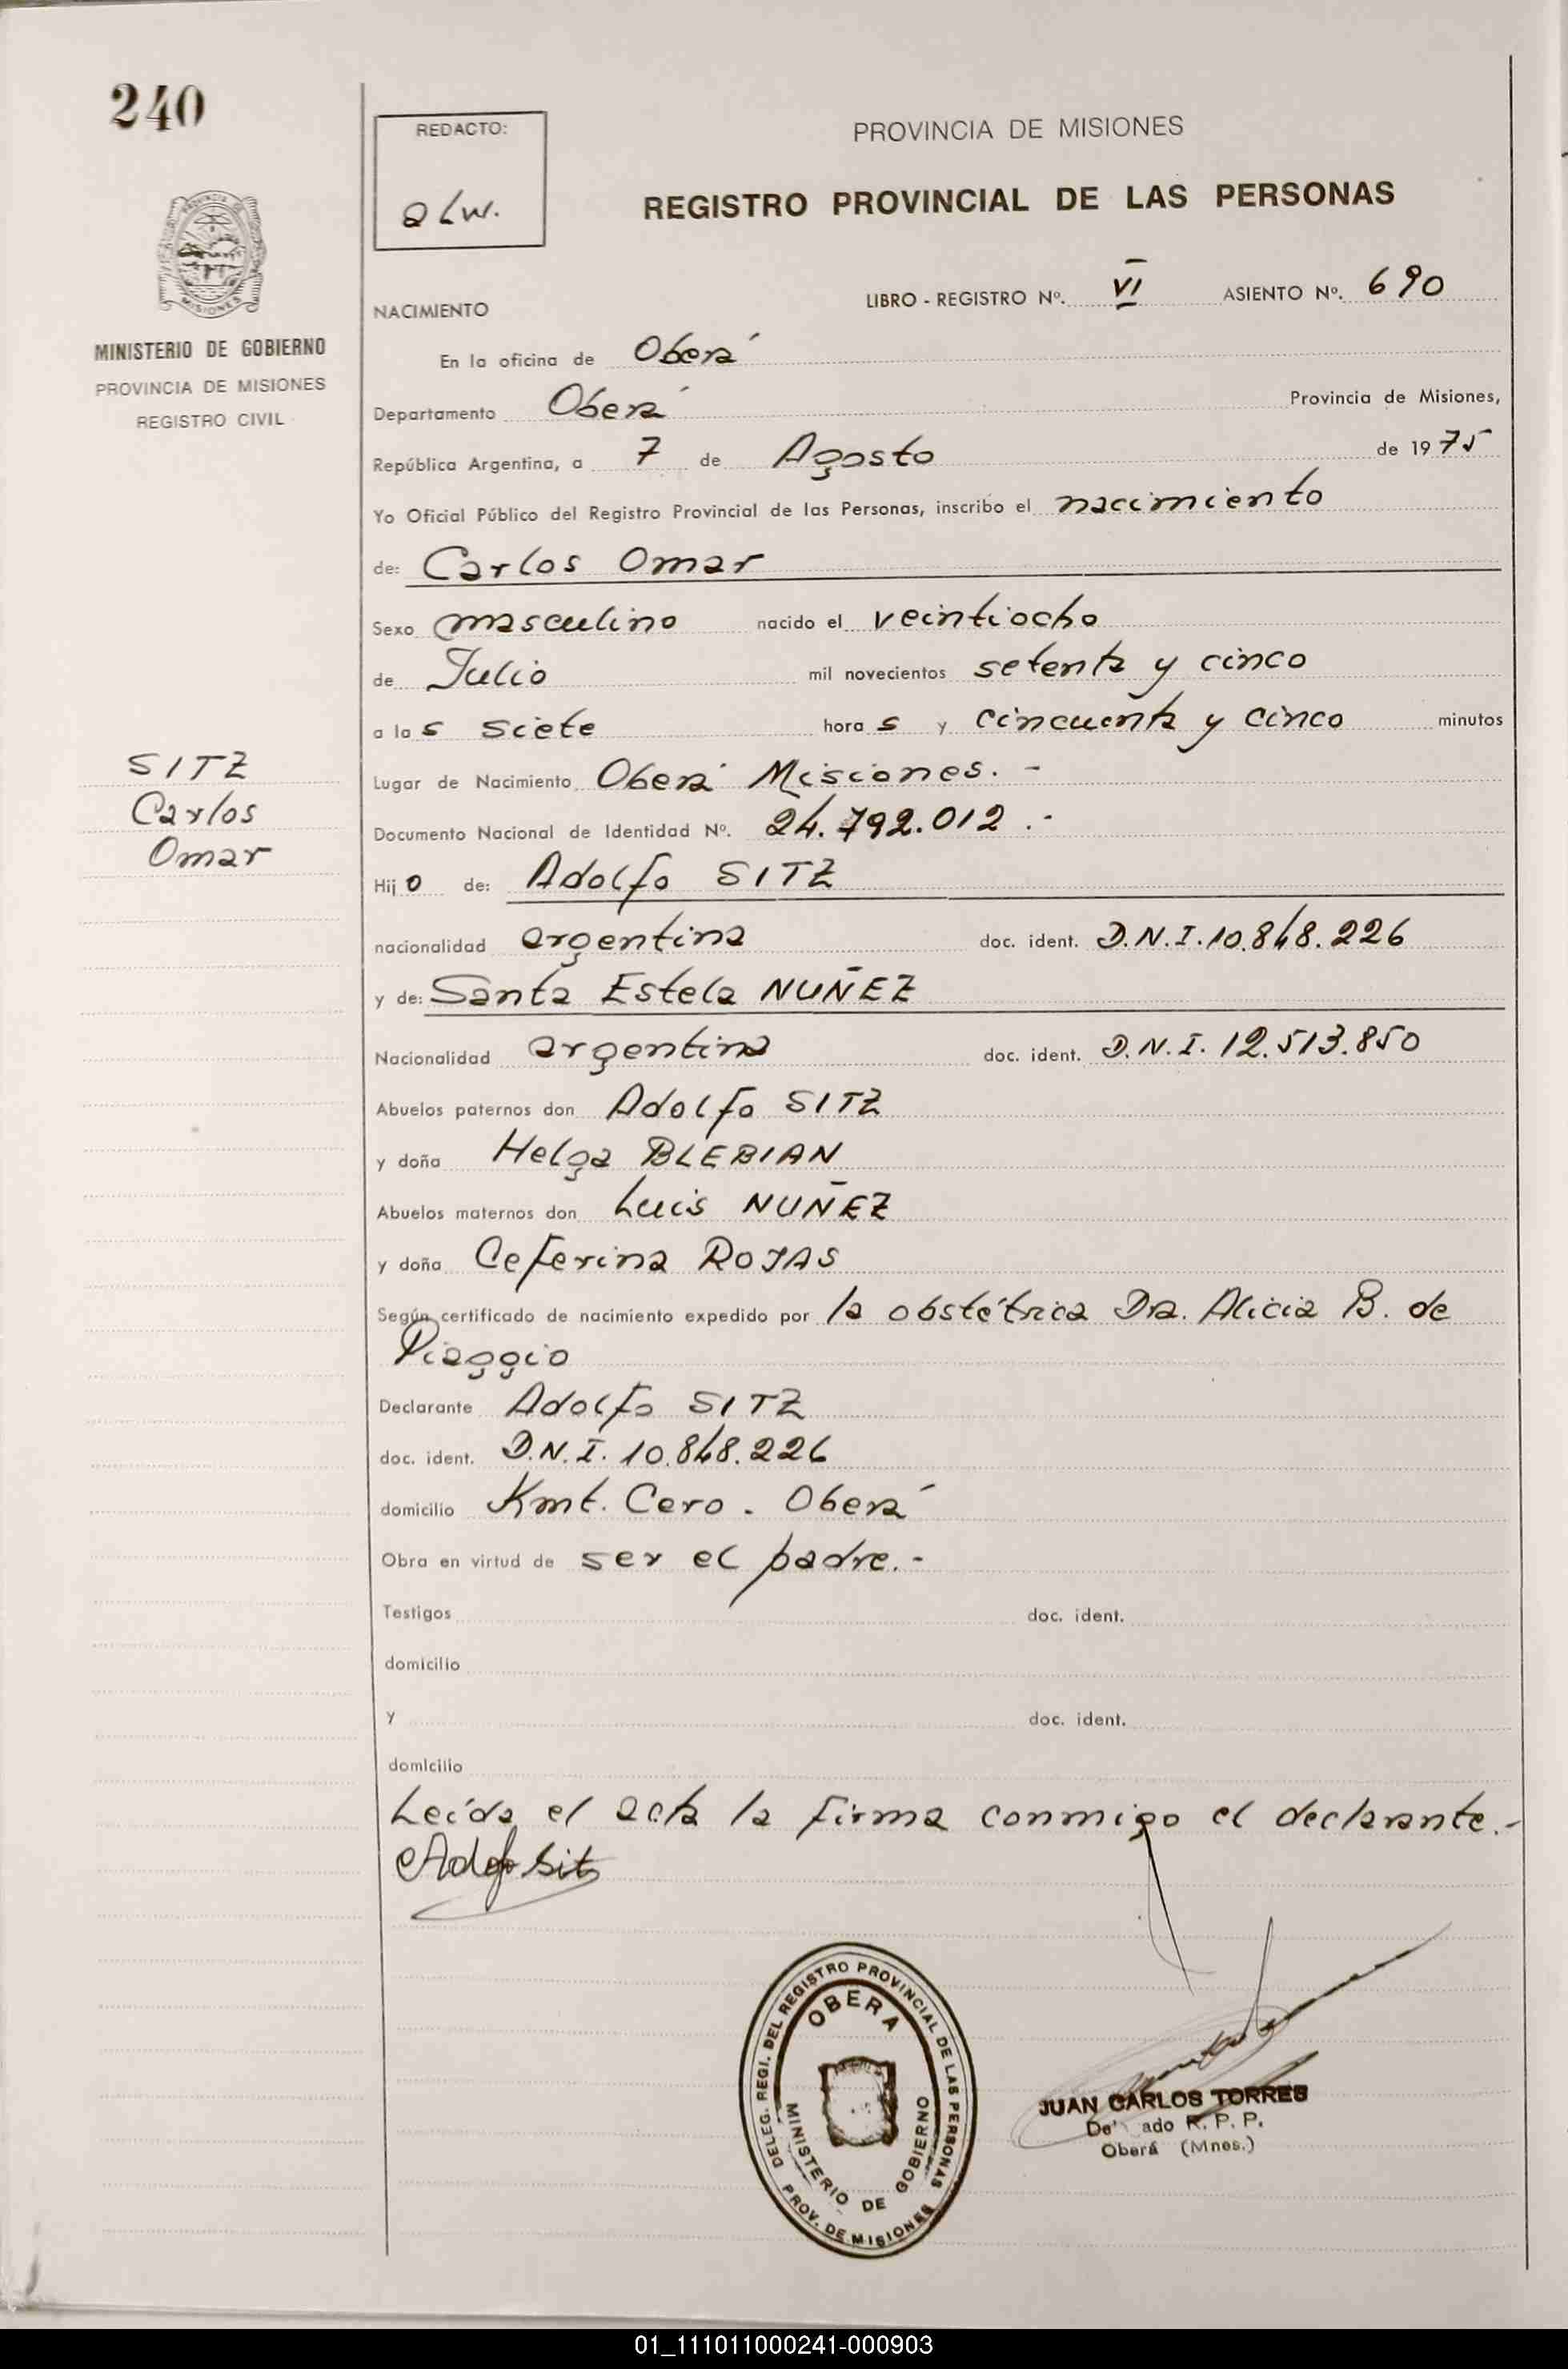 240
REDACTO:
aLw.
PROVINCIA DE MISIONES
REGISTRO PROVINCIAL DE LAS PERSONAS
MISIONES
MINISTERIO DE GOBIERNO
PROVINCIA DE MISIONES
REGISTRO CIVIL
NACIMIENTO
LIBRO - REGISTRO Nº. VI ASIENTO Nº. 690
En la oficina de Oberá
Departamento Oberá Provincia de Misiones,
República Argentina, a 7 de Agosto de 1975
Yo Oficial Público del Registro Provincial de las Personas, inscribo el nacimiento
de: Carlos Omar
Sexo masculino nacido el veintiocho
de Julio mil novecientos setenta y cinco
a las siete horas y cincuenta y cinco minutos
SITZ
Carlos
Omar
Lugar de Nacimiento Oberá Misiones. -
Documento Nacional de Identidad Nº. 24.792.012 .-
Hijo de: Adolfo SITZ
nacionalidad argentina doc. ident. D.N.I. 10.848.226
y de: Santa Estela NUÑEZ
Nacionalidad argentina doc. ident. D.N.I. 12.513.850
Abuelos paternos don Adolfo SITZ
y doña Helga BLEBIAN
Abuelos maternos don Luis NUÑEZ
y doña Ceferina ROJAS
Según certificado de nacimiento expedido por la obstétrica Dra. Alicia B. de
Piaggio
Declarante Adolfo SITZ
doc. ident. D.N.I. 10.848.226
domicilio Kmt. Cero . Oberá
Obra en virtud de ser el padre.-
Testigos doc. ident.
domicilio
y doc. ident.
domicilio
Leída el acta la firma conmigo el declarante.-
Adolfo Sitz
DELEG. REGI. DEL REGISTRO PROVINCIAL DE LAS PERSONAS
OBERA
MINISTERIO DE GOBIERNO
PROV. DE MISIONES
JUAN CARLOS TORRES
De ado R. P. P.
Oberá (Mnes.)
01_111011000241-000903